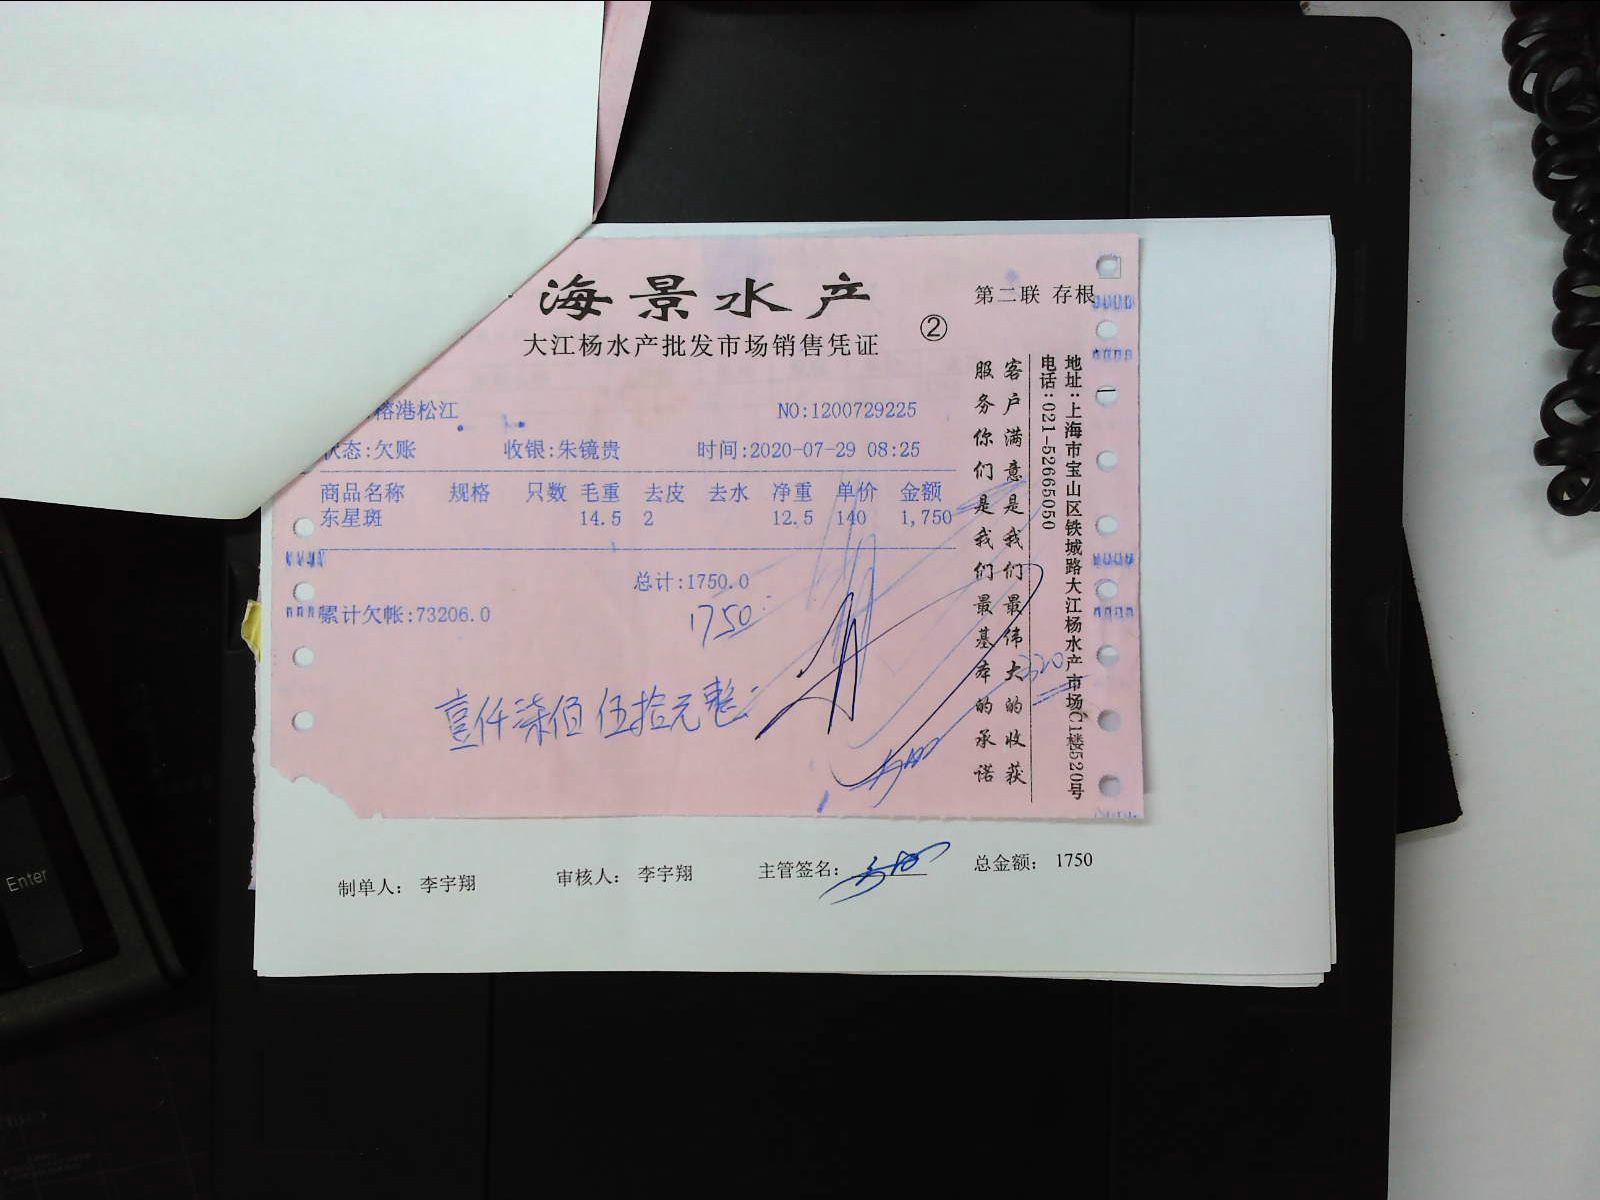 海景水产
第二联 存根
大江杨水产批发市场销售凭证
②
榕港松江
NO:1200729225
状态:欠账 收银:朱镜贵 时间:2020-07-29 08:25
商品名称 规格 只数 毛重 去皮 去水 净重 单价 金额
东星斑 14.5 2 12.5 140 1,750
总计:1750.0
累计欠帐:73206.0
1750
壹仟柒佰伍拾元整
地址:上海市宝山区铁城路大江杨水产市场C1楼520号
电话:021-52665050
客户满意是我们最伟大的收获
服务你们是我们最基本的承诺
320
制单人: 李宇翔 审核人: 李宇翔 主管签名: 总金额: 1750
Enter